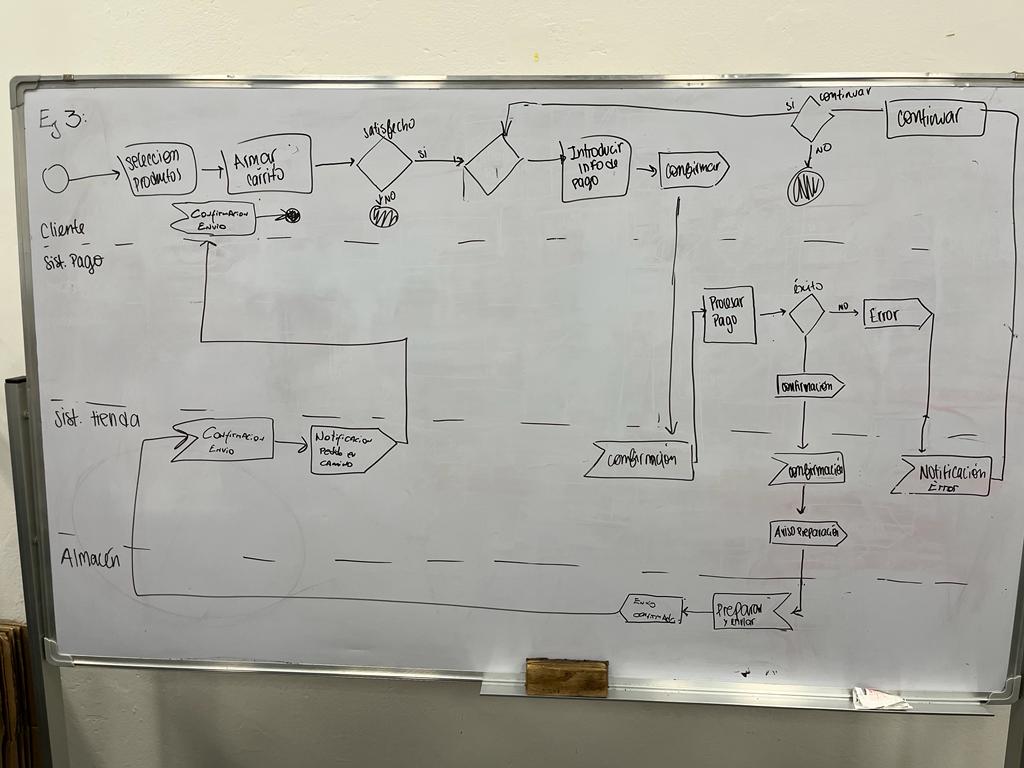 Ej 3:
Selección
productos
Armar
carrito
satisfecho
si
NO
Introducir
info de
pago
Confirmar
si
continuar
NO
continuar
Confirmacion
Envio
Cliente
Sist. Pago
Procesar
Pago
éxito
NO
Error
confirmación
Sist. tienda
Confirmacion
Envio
Notificacion
Pedido en
camino
confirmación
confirmación
Notificación
Error
Aviso preparación
Almacén
Envio
confirmado
Preparar
y enviar